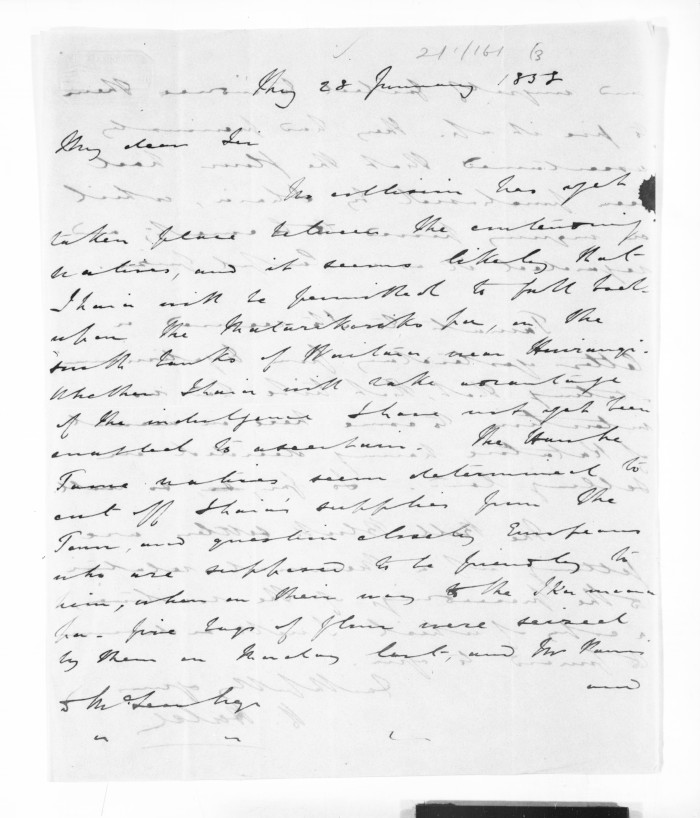 21/161 /3
Thy 28 January 1858
My dear Sir
No collision has yet
taken place between the contending
natives, and it seems likely that
Ihaia will be permitted to fall back
upon the Mataretikoriko pa, on the
south banks of Waitara near Huirangi.
Whether Ihaia will take advantage
of the indulgence I have not yet been
enabled to ascertain. The
natives seem determined to
cut off Ihaia's supplies from the
Town, and question closely Europeans
who are supposed to be friendly to
him, when on their way to the Ika moana
pa. Five bags of flour were seized
by them on Monday last, and Mr
and
D McLean Esqr
" " "